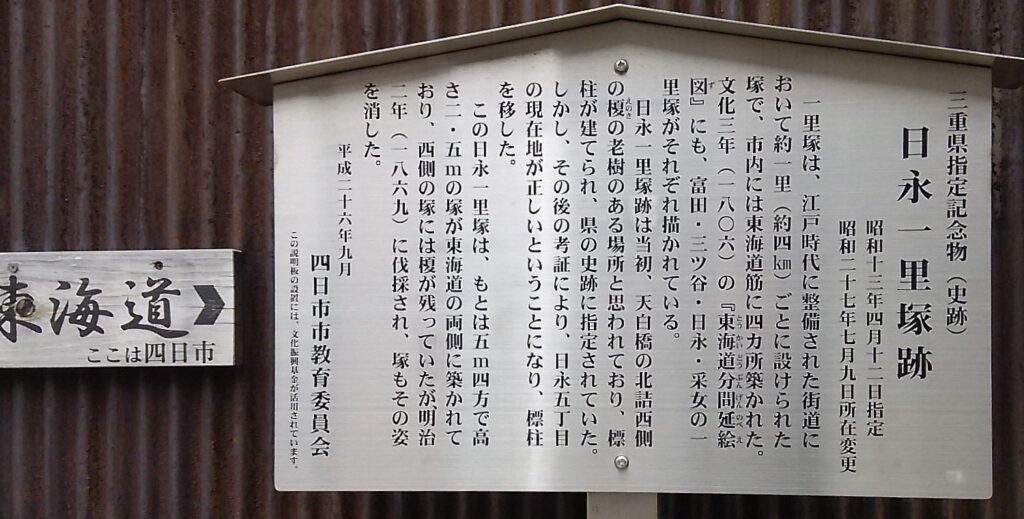 三重県指定記念物（史跡）
日永一里塚跡
昭和十三年四月十二日指定
昭和二十七年七月九日所在変更
一里塚は、江戸時代に整備された街道に
おいて約一里（約四㎞）ごとに設けられた
塚で、市内には東海道筋に四カ所築かれた。
文化三年（一八〇六）の『東海道分間延絵
図』にも、富田・三ツ谷・日永・采女の一
里塚がそれぞれ描かれている。
日永一里塚跡は当初、天白橋の北詰西側
の榎の老樹のある場所と思われており、標
柱が建てられ、県の史跡に指定されていた。
しかし、その後の考証により、日永五丁目
の現在地が正しいということになり、標柱
を移した。
この日永一里塚は、もとは五ｍ四方で高
さ二・五ｍの塚が東海道の両側に築かれて
おり、西側の塚には榎が残っていたが明治
二年（一八六九）に伐採され、塚もその姿
を消した。
平成二十六年九月
四日市市教育委員会
この説明板の設置には、文化振興基金が活用されています。
東海道
ここは四日市